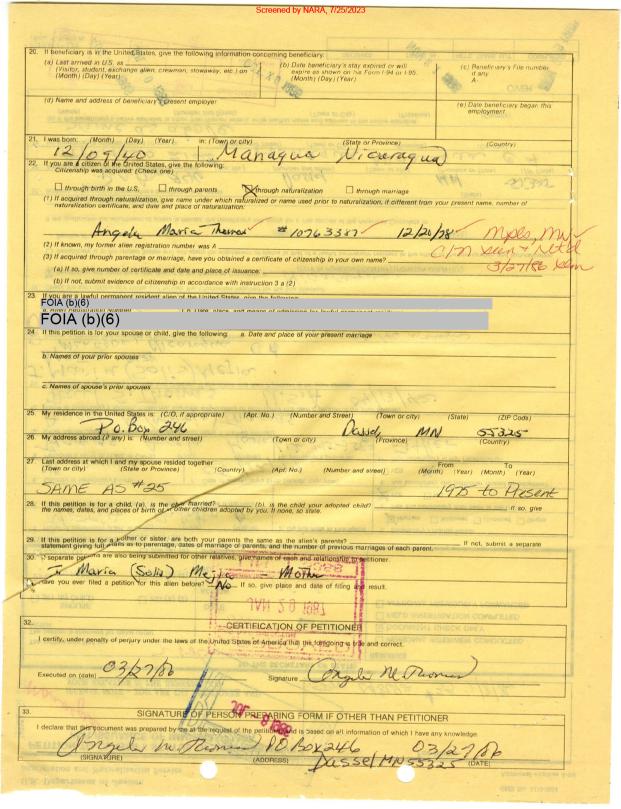 Screened by NARA, 7/25/2023
20. If beneficiary is in the United States, give the following information concerning beneficiary:
(a) Last arrived in U.S. as (Visitor, student, exchange alien, crewman, stowaway, etc.) on (Month) (Day) (Year)
(b) Date beneficiary's stay expired or will expire as shown on his Form I-94 or I-95. (Month) (Day) (Year)
(c) Beneficiary's File number, if any A-
(d) Name and address of beneficiary's present employer
(e) Date beneficiary began this employment.
21. I was born: (Month) (Day) (Year) in: (Town or city) (State or Province) (Country)
12/09/40 Managua Nicaragua
22. If you are a citizen of the United States, give the following:
Citizenship was acquired: (Check one)
through birth in the U.S. through parents through naturalization through marriage
(1) If acquired through naturalization, give name under which naturalized or name used prior to naturalization, if different from your present name, number of
naturalization certificate, and date and place of naturalization:
Angela Maria Thomes #10763387 12/20/78 Mpls, MN
C/N seen + ret'd
3/27/86
(2) If known, my former alien registration number was A
(3) If acquired through parentage or marriage, have you obtained a certificate of citizenship in your own name?
(a) If so, give number of certificate and date and place of issuance:
(b) If not, submit evidence of citizenship in accordance with instruction 3 a (2)
23. If you are a lawful permanent resident alien of the United States, give the following:
FOIA (b)(6)
FOIA (b)(6)
24. If this petition is for your spouse or child, give the following: a. Date and place of your present marriage
b. Names of your prior spouses
c. Names of spouse's prior spouses
25. My residence in the United States is: (C/O, if appropriate) (Apt. No.) (Number and Street) (Town or city) (State) (ZIP Code)
P.O. Box 246 Dassel MN 55325
26. My address abroad (if any) is: (Number and street) (Town or city) (Province) (Country)
27. Last address at which I and my spouse resided together From To
(Town or city) (State or Province) (Country) (Apt. No.) (Number and street) (Month) (Year) (Month) (Year)
SAME AS #25 1975 to Present
28. If this petition is for a child, (a). is the child married? (b). is the child your adopted child? If so, give
the names, dates, and places of birth of all other children adopted by you. If none, so state.
29. If this petition is for a brother or sister, are both your parents the same as the alien's parents? If not, submit a separate
statement giving full details as to parentage, dates of marriage of parents, and the number of previous marriages of each parent.
30. If separate petitions are also being submitted for other relatives, give names of each and relationship to petitioner.
Maria (Solis) Mejia - Mother
31. Have you ever filed a petition for this alien before? No If so, give place and date of filing and result.
32. CERTIFICATION OF PETITIONER
I certify, under penalty of perjury under the laws of the United States of America that the foregoing is true and correct.
Executed on (date) 03/27/86 Signature Angela M Thomes
33. SIGNATURE OF PERSON PREPARING FORM IF OTHER THAN PETITIONER
I declare that this document was prepared by me at the request of the petitioner and is based on all information of which I have any knowledge
Angela M Thomes PO Box 246 03/27/86
(SIGNATURE) (ADDRESS) Dassel MN 55325 (DATE)